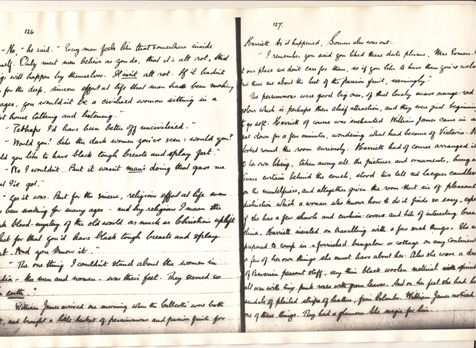 126
"No," he said. "Every man feels like that somewhere inside
himself. Only most men believe as you do, that it's all rot, that
will happen by themselves. It isn't all rot. If it hadn't
for the deep, sincere effort at life that man has been making
ages, you wouldn't be a civilised woman sitting in a
house talking and listening."
"Perhaps I'd have been better off uncivilised."
"Would you? Like the dark women you've seen: would you?
you like to have black tough breasts and splay feet."
"No I wouldn't. But it wasn't man's doing that gave me
I've got."
"Yes it was. But for the sincere, religious effort at life man
been making for many ages - and by religious I mean the
blood-mystery of the old world as much as Christian uplift
but for that you'd have black tough breasts and splay
And you know it."
"The one thing I couldn't stand about the women in
- the men and women - was their feet. They seemed so
William James arrived one morning when the Callcotts were both
and brought a little basket of persimmons and passion fruit for
127.
Harriett. As it happened, Somers also was out.
"I remember you said you liked these date plums, Mrs Somers.
our place we don't care for them, so if you like to have them you're welcome
And these are about the last of the passion fruit, seemingly."
The persimmons were good big ones, of that lovely suave orange-red
colour which is perhaps their chief attraction, and they were just beginning
to go soft. Harriett of course was enchanted. William James came in
sat down for a few minutes, wondering what had become of Victoria
looked round the room curiously. Harriett had of course arranged it
to her own liking, taken away all the pictures and ornaments, hung
curtain behind the couch, stood two tall red lacquer candlesticks
on the mantelpiece, and altogether given the room that air of pleasant
distinction which a woman who knows how to do it finds so easy,
if she has a few shawls and cushion-covers and bits of interesting
china. Harriett insisted on travelling with a few such things. She
prepared to camp in a furnished bungalow or cottage on any continent,
few of her own things she must have about her. Also she wore a
of Bavarian peasant stuff, very thin black woollen material
all over with tiny pink roses with green leaves. And on her feet she had
sandals of plaited strips of leather, from Colombo. William James noticed
one of these things. They had a glamour like magic for him.